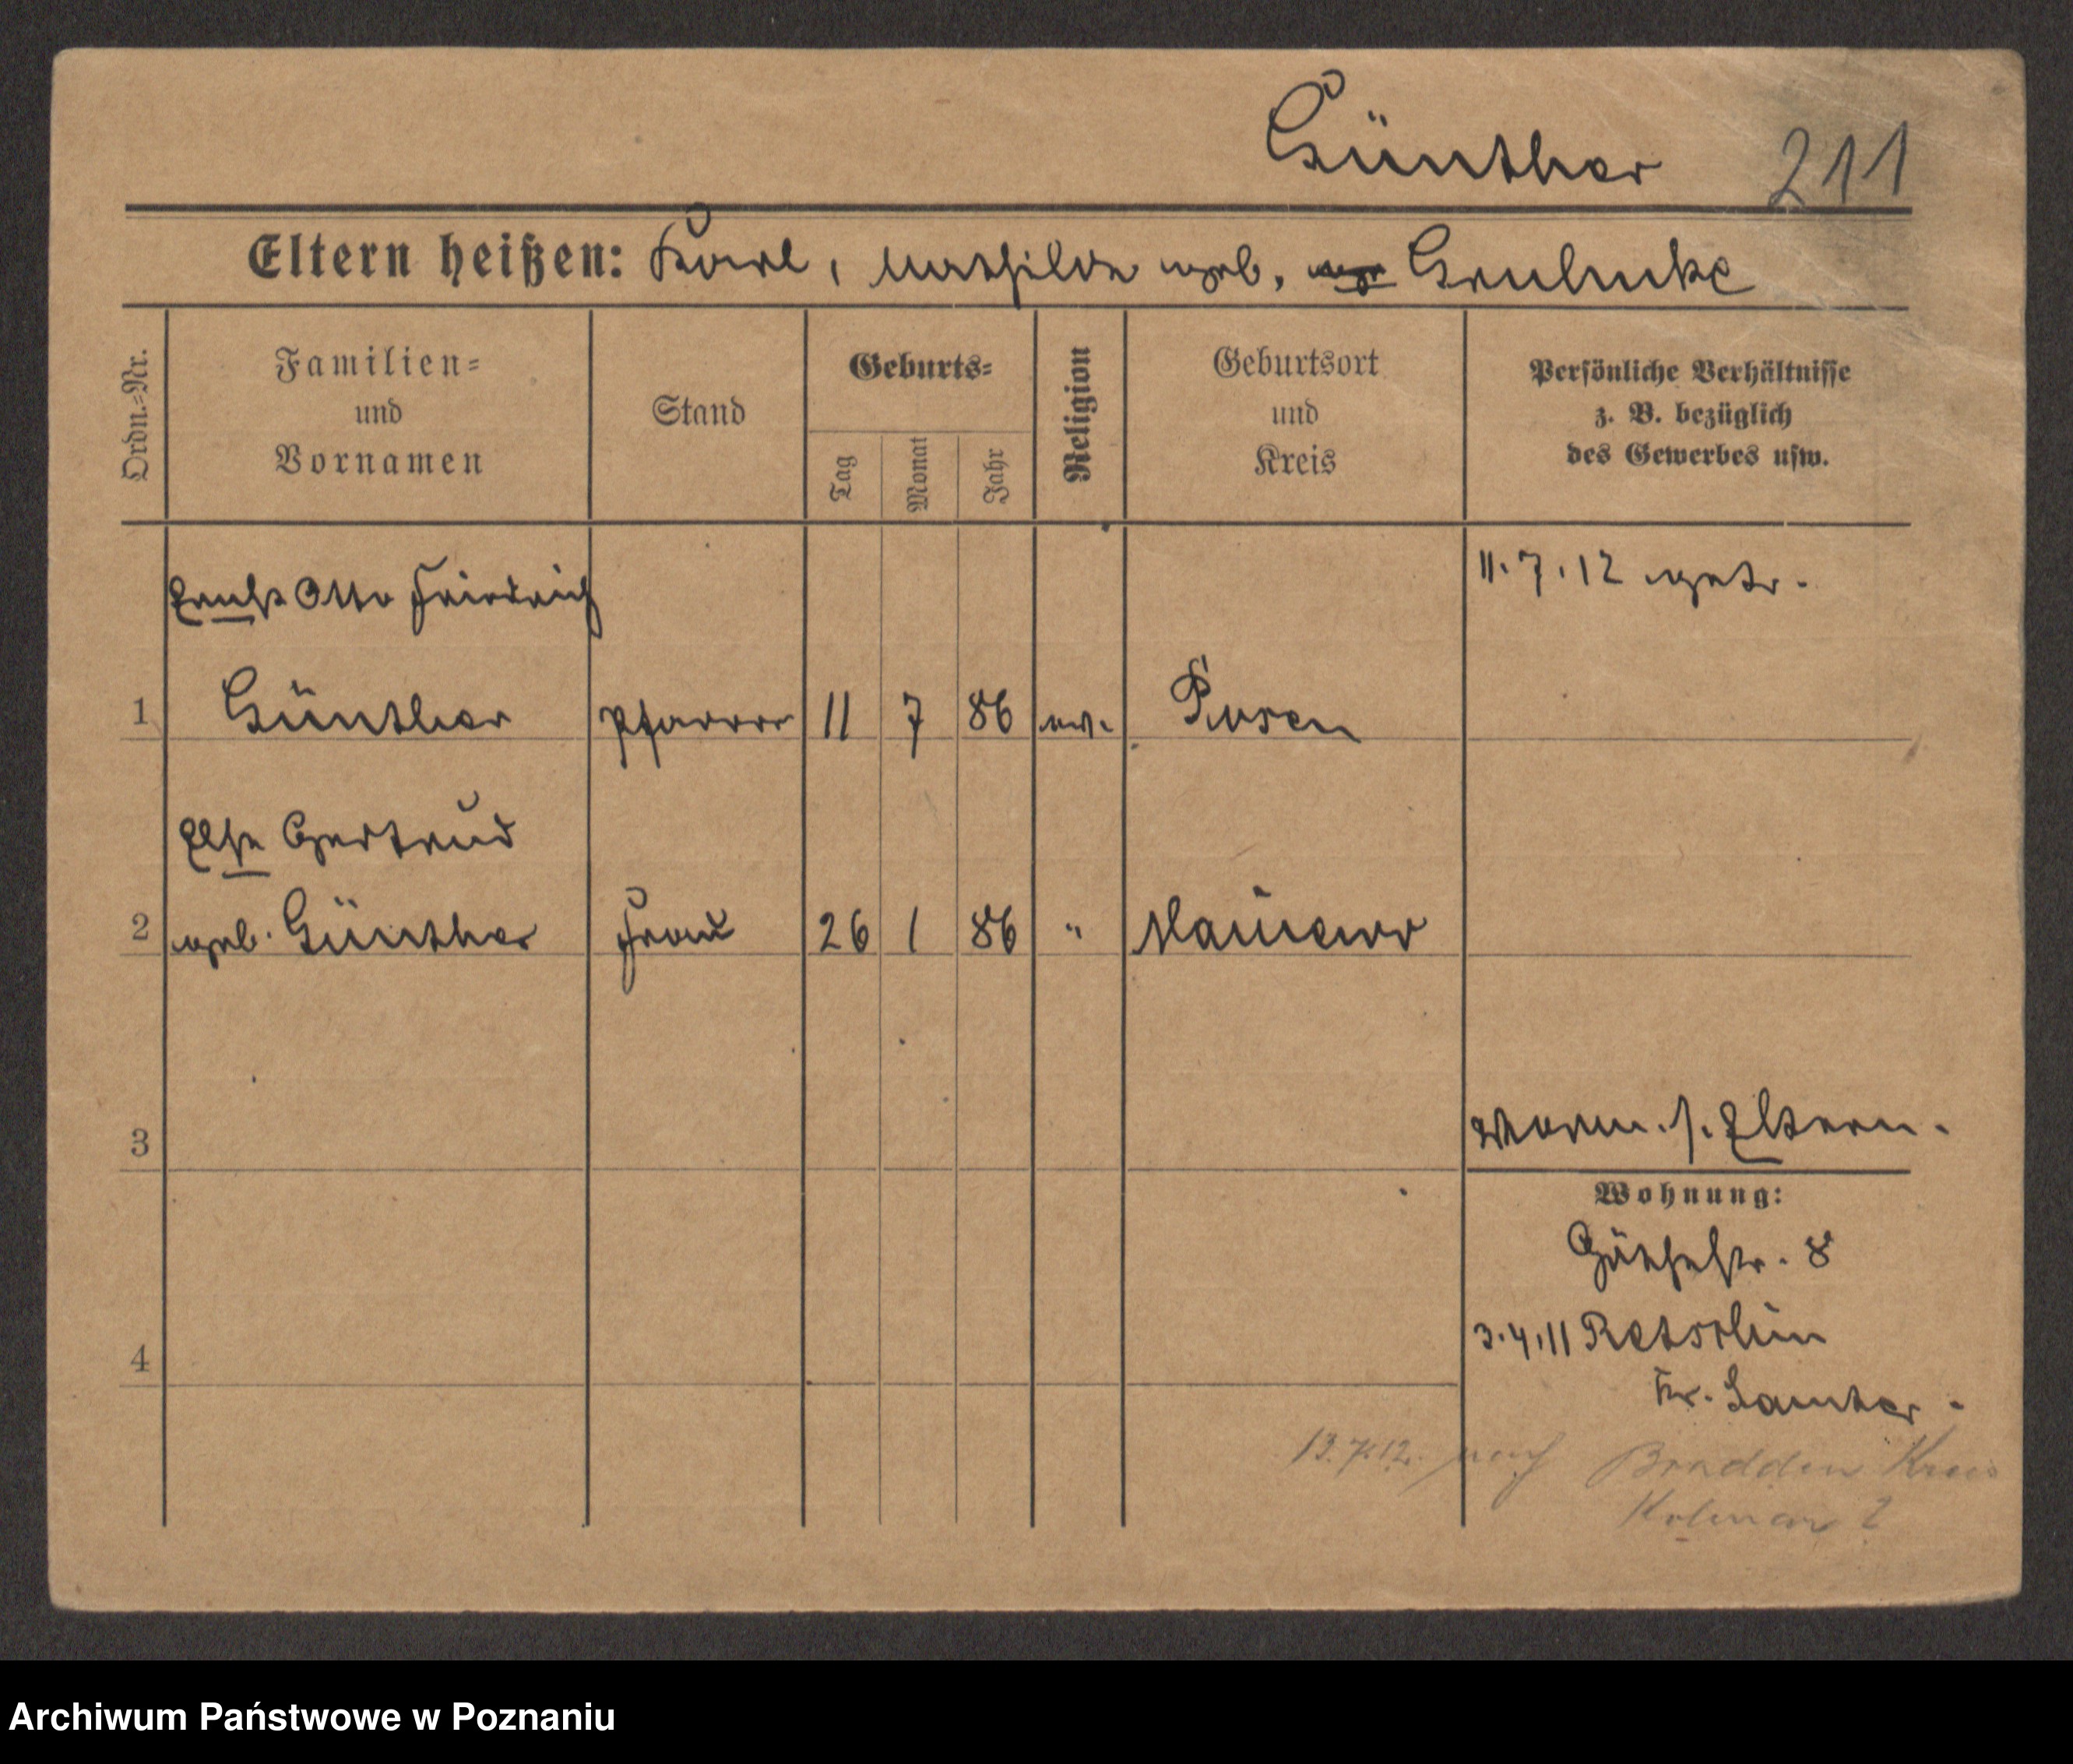 Günther 211
Eltern heißen: Karl, Mathilde geb. Grulmke
Ordn.=Nr.
Familien=
und
Vornamen
Stand
Geburts=
Tag
Monat
Jahr
Religion
Geburtsort
und
Kreis
Persönliche Verhältnisse
z. B. bezüglich
des Gewerbes usw.
Ernst Otto Friedrich
11.7.12 getr.
1 Günther Pfarrer 11 7 86 ev. Posen
Else Gertrud
2 geb. Günther Frau 26 1 86 " 
3
s. Eltern.
Wohnung:
Göthestr. 8
3.4.11
4
Kr. Samter.
13.7.12. nach Kreis
Kolmar
Archiwum Państwowe w Poznaniu